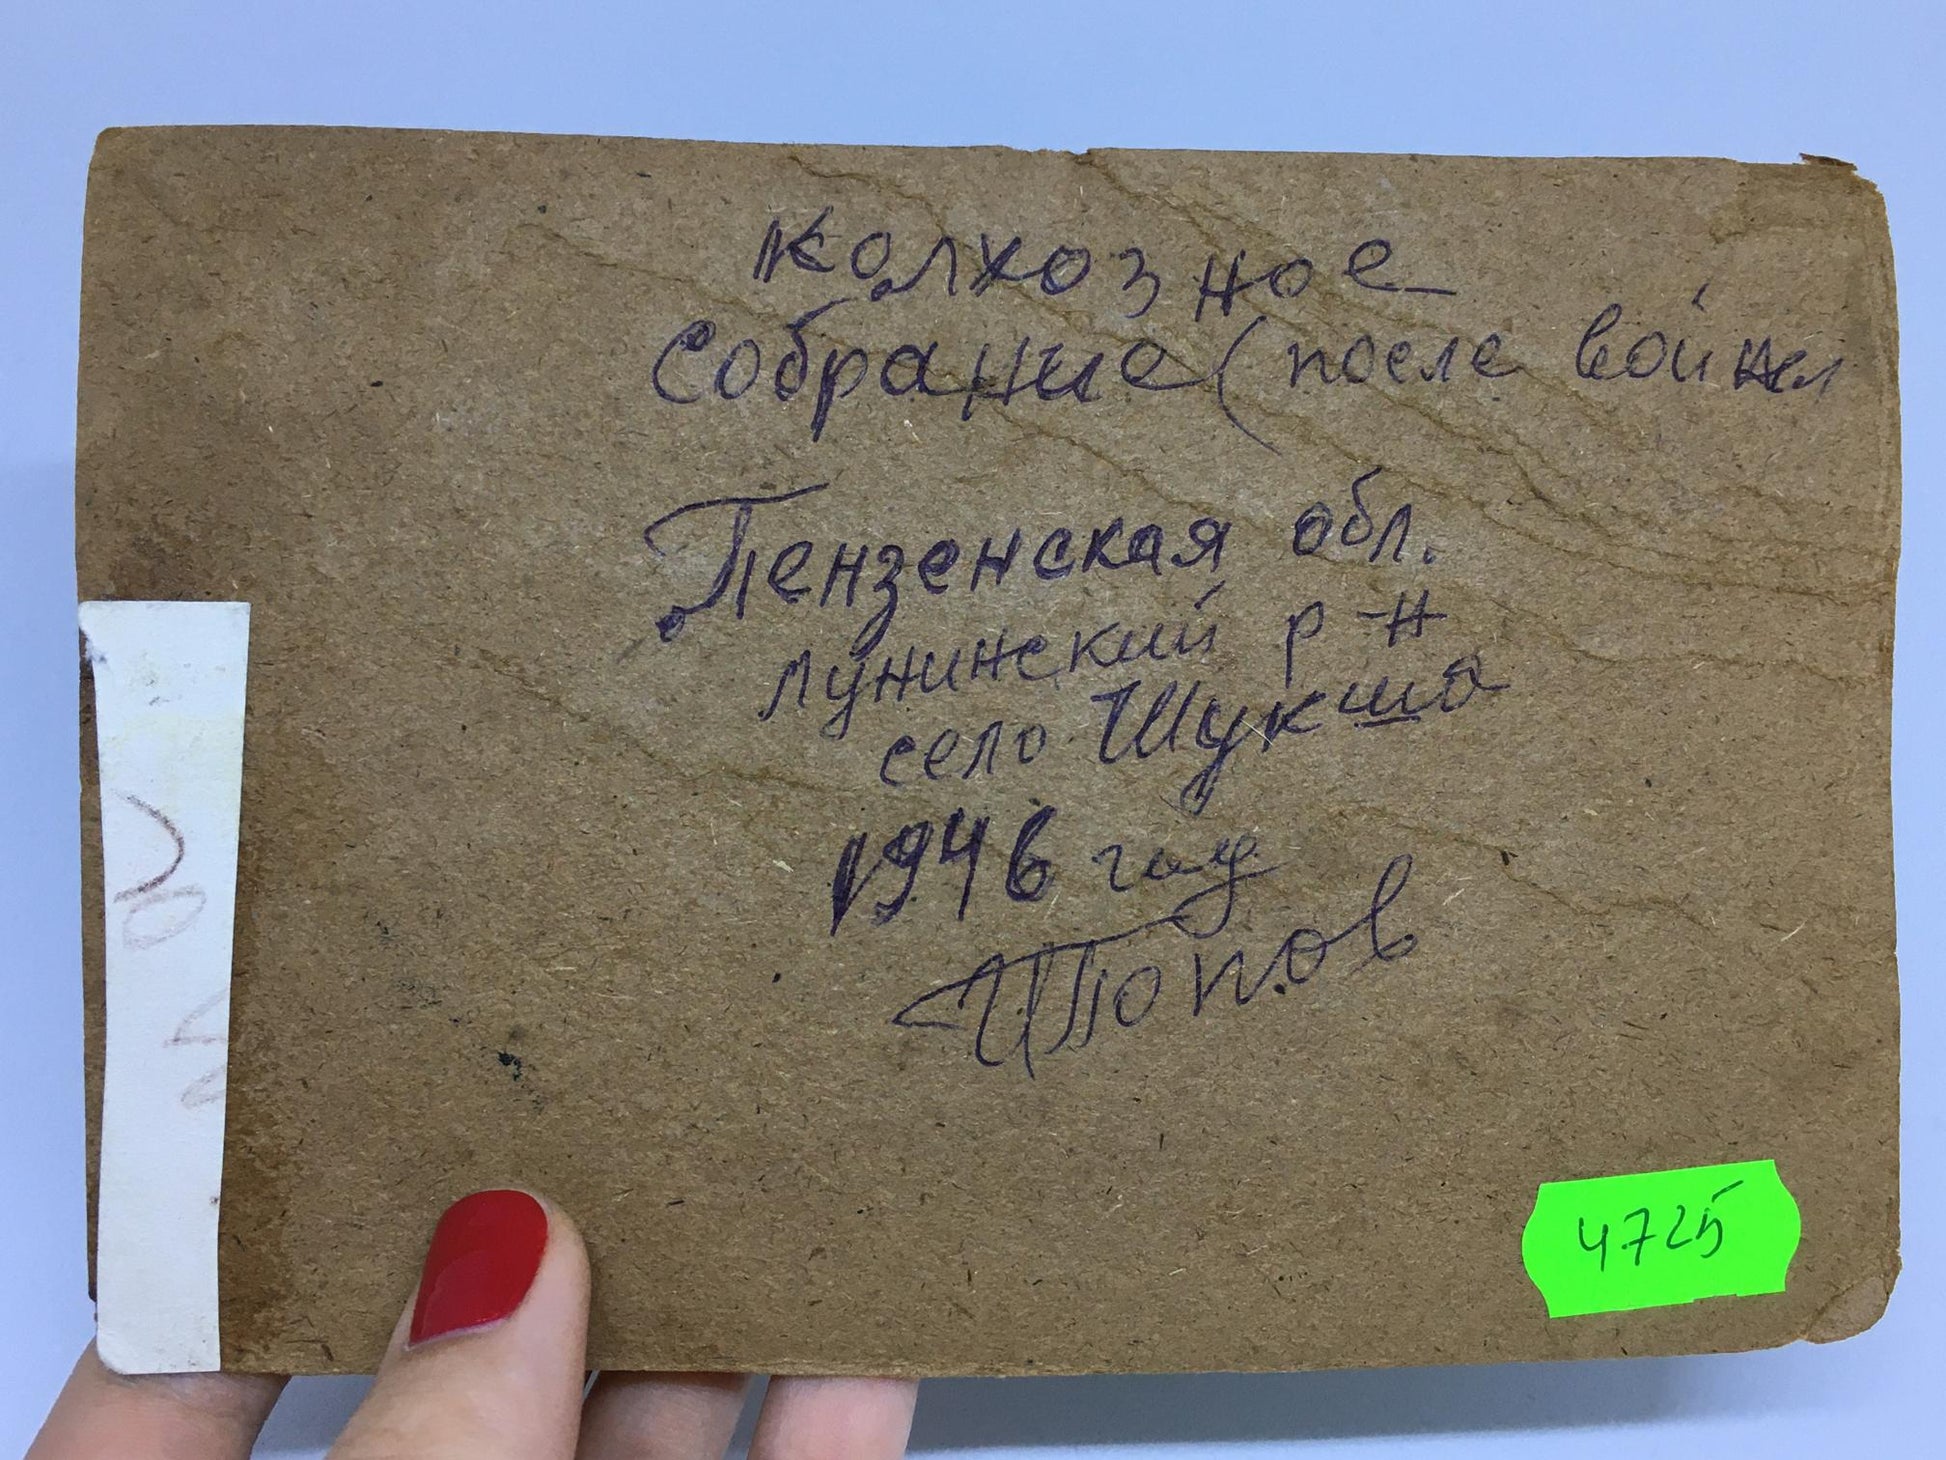 колхозное
собрание (после войны
Пензенская обл.
лунинский р-н
село Шукша
1946 год
Попов
4725